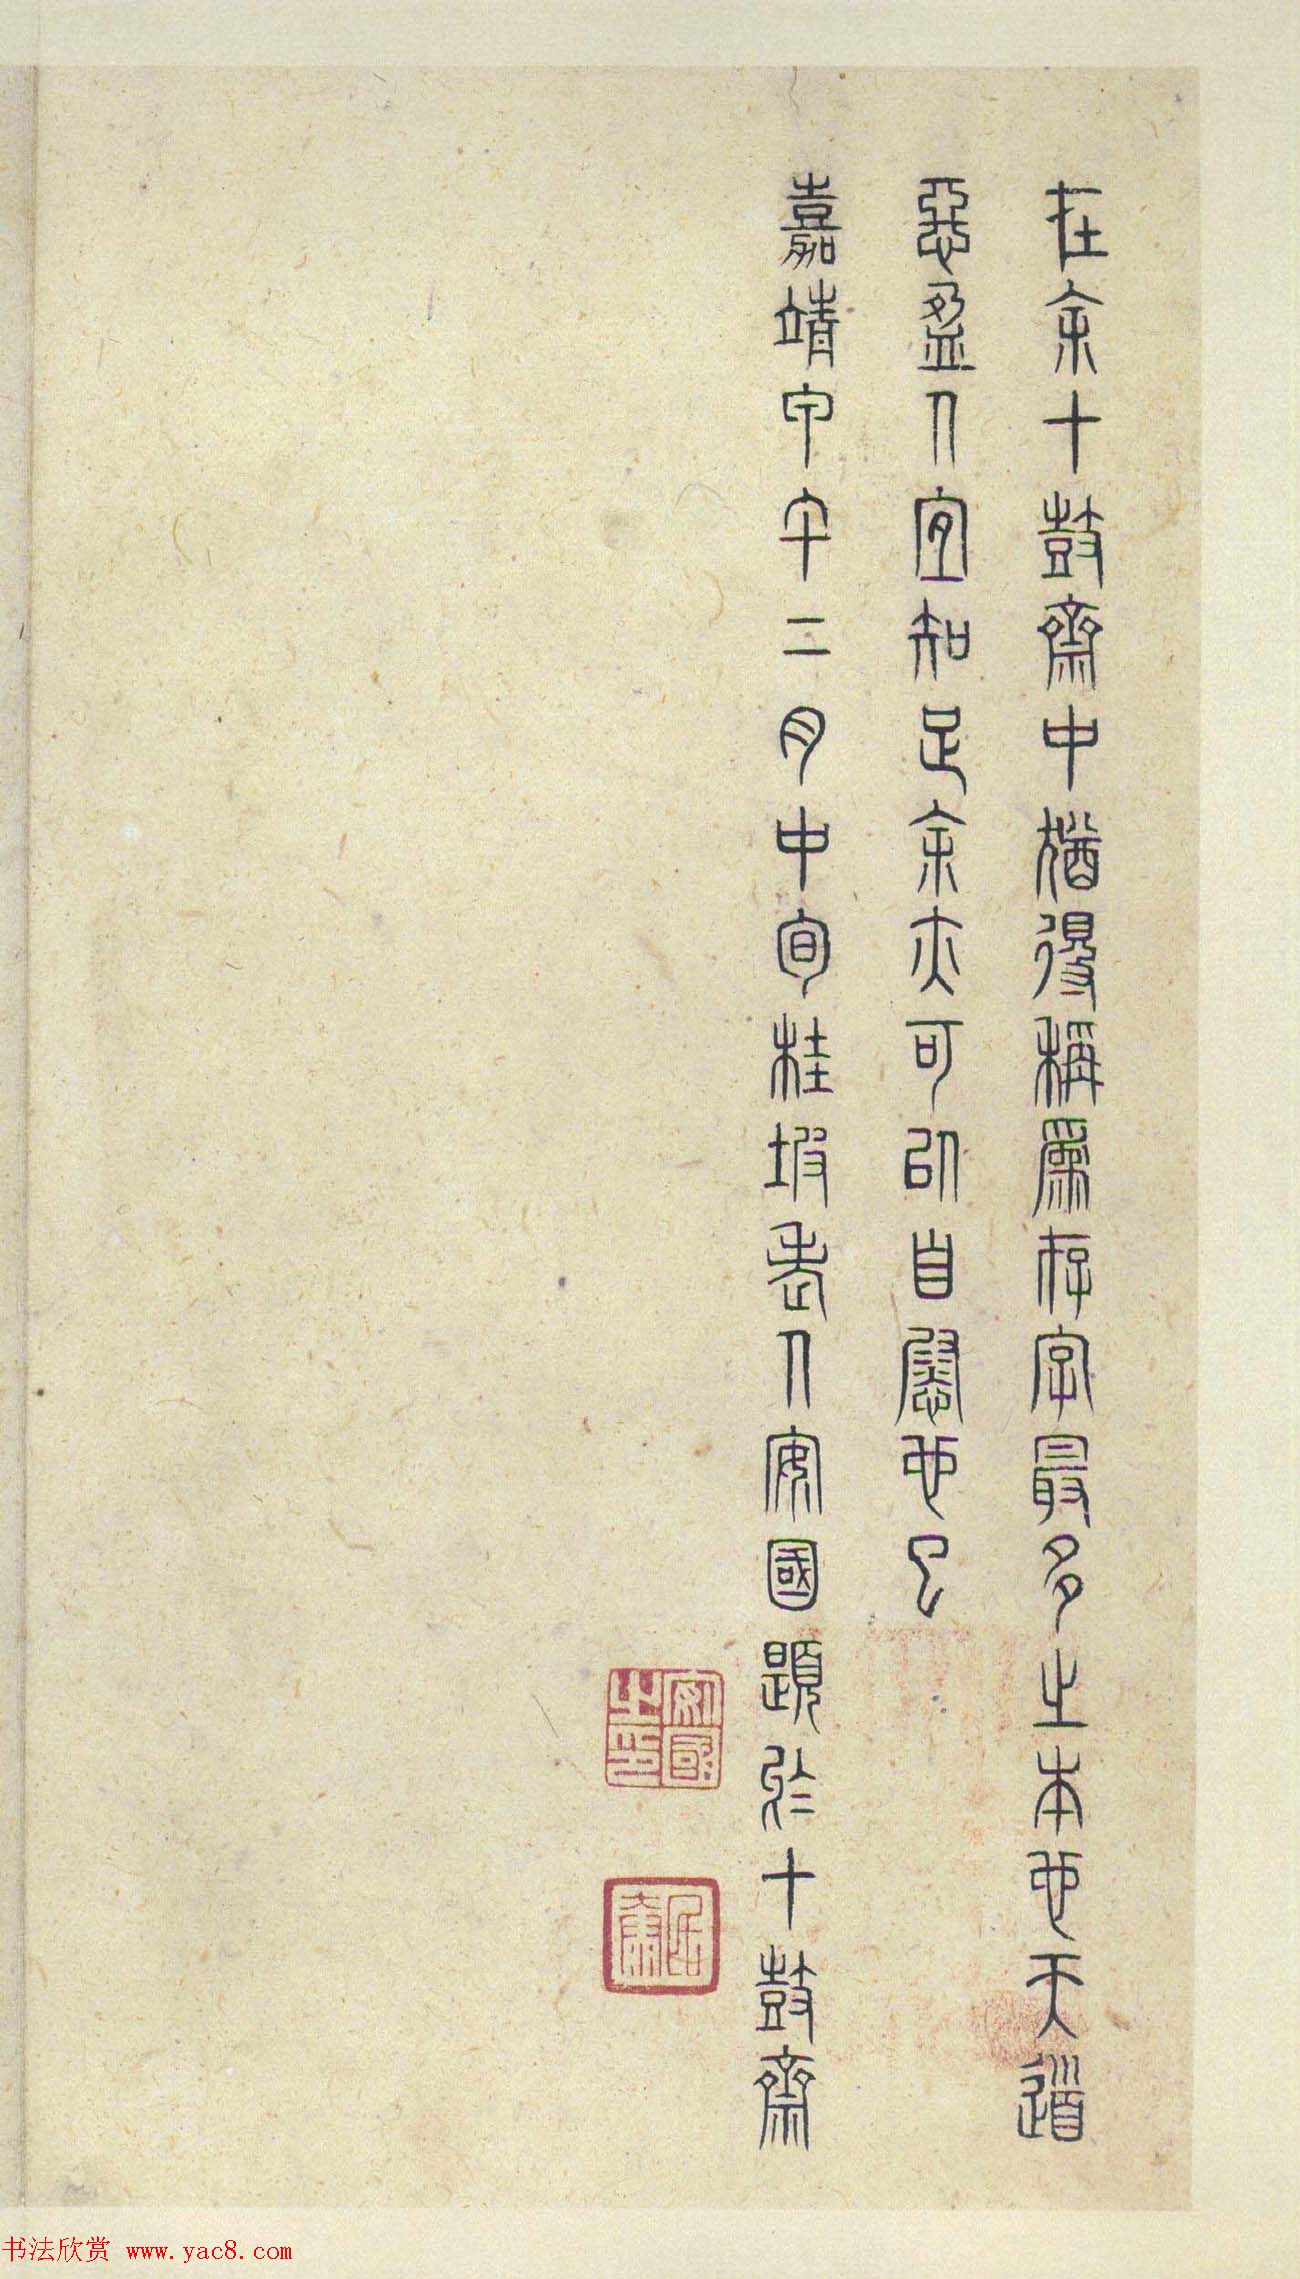 在余十鼓齋中猶得稱為存字最多之本也天道
惡盈人宜知足余亦可以自慰也已
嘉靖甲午二月中旬桂坡老人安國題於十鼓齋
安國之印
书法欣赏 www.yac8.com